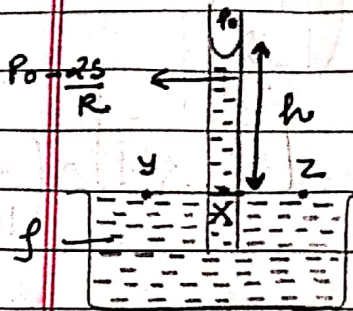 P₀
P₀ - 2S/R
h
y
Z
X
ρ